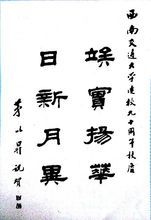 西南交通大学建校九十周年校庆
竢實揚華
日新月異
茅以昇祝賀